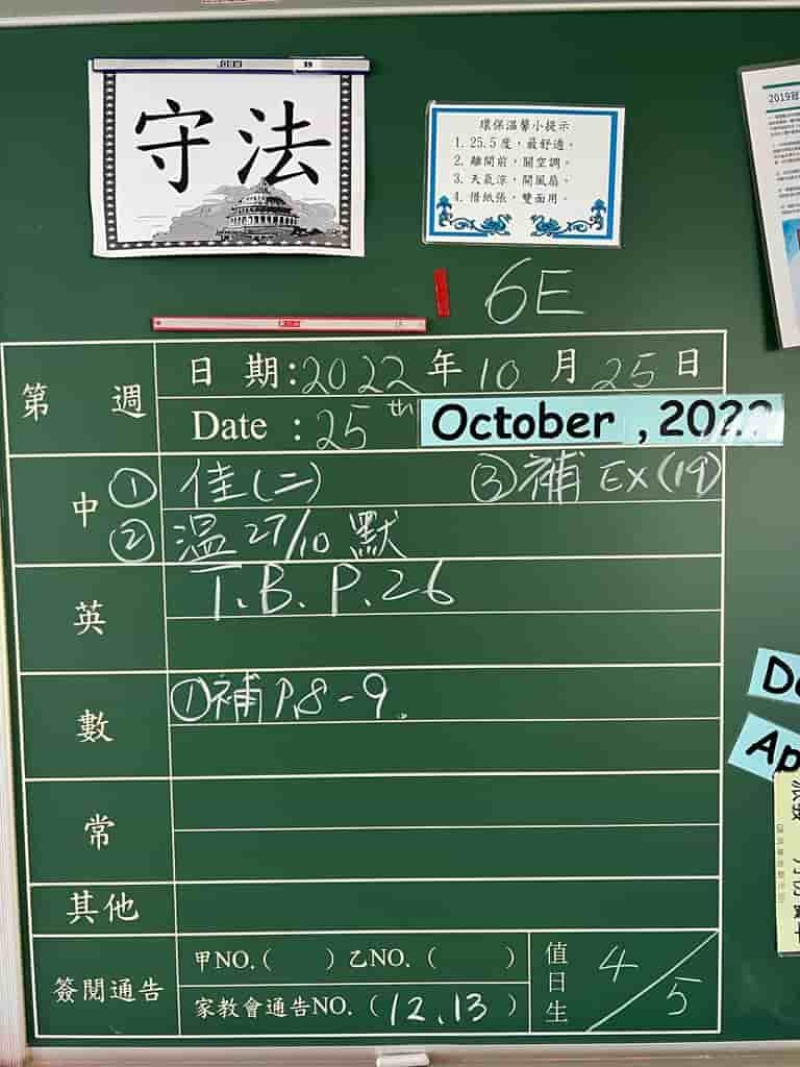 守法
環保溫馨小提示
1. 25.5度，最舒適。
2. 離開前，關空調。
3. 天氣涼，開風扇。
4. 惜紙張，雙面用。
2019冠
6E
第 週
日 期:2022年10月25日
Date :25th October , 2022
中 ①佳(二) ③補 EX(19)
②溫 27/10 默
英 T.B. P.26
數 ①補 P.8-9.
常
其他
簽閱通告
甲NO.( )乙NO.( )
家教會通告NO.(12,13)
值日生 4/5
De
Ap